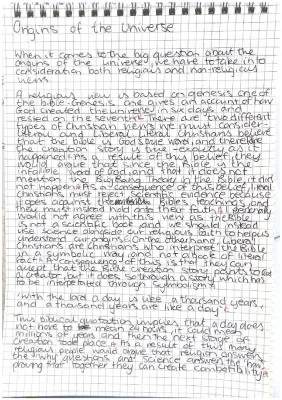 Origins of the Universe
When it comes to the big question about the
origins of the universe, we have to take into
consideration both religious and non-religious
views.
A religious view is based on genesis, one of
the bible. Genesis one gives an account of how
God created the universe in six days and
rested on the seventh. There are two different
types of Christian views we must consider:
Liberal and literal. Literal Christians believe
that the bible is God's true word, and therefore
the creation story is true exactly as it
happened. As a result of this belief, they
would argue that since the Bible is the
infallible word of God, and that it does not
mention the Big Bang Theory in the Bible, it did
not happen. As a consequence of this belief, literal
Christians must reject scientific evidence because
it goes against the Bible's teachings, and
they must instead hold onto their faith. I personally
would not agree with this view as the bible
is not a scientific book and we should instead
use science alongside our religious faith to help us
understand our origins. On the other hand, liberal
Christians are Christians who interpret the Bible
in a symbolic way and not a book of literal
fact. A consequence of this is that they can
accept that the Bible creation story points to God
as creator, but it does so through a story which has
to be interpreted through symbolism.
"With the lord a day is like a thousand years,
and a thousand years are like a day"
This biblical quotation implies that a day does
not have to mean 24 hours, it could mean
millions of years and then the next stage of
creation took place. As a result of this many
religious people would argue that religion answers
the "why" questions and science answers the "how"
proving that together they can create compatibility